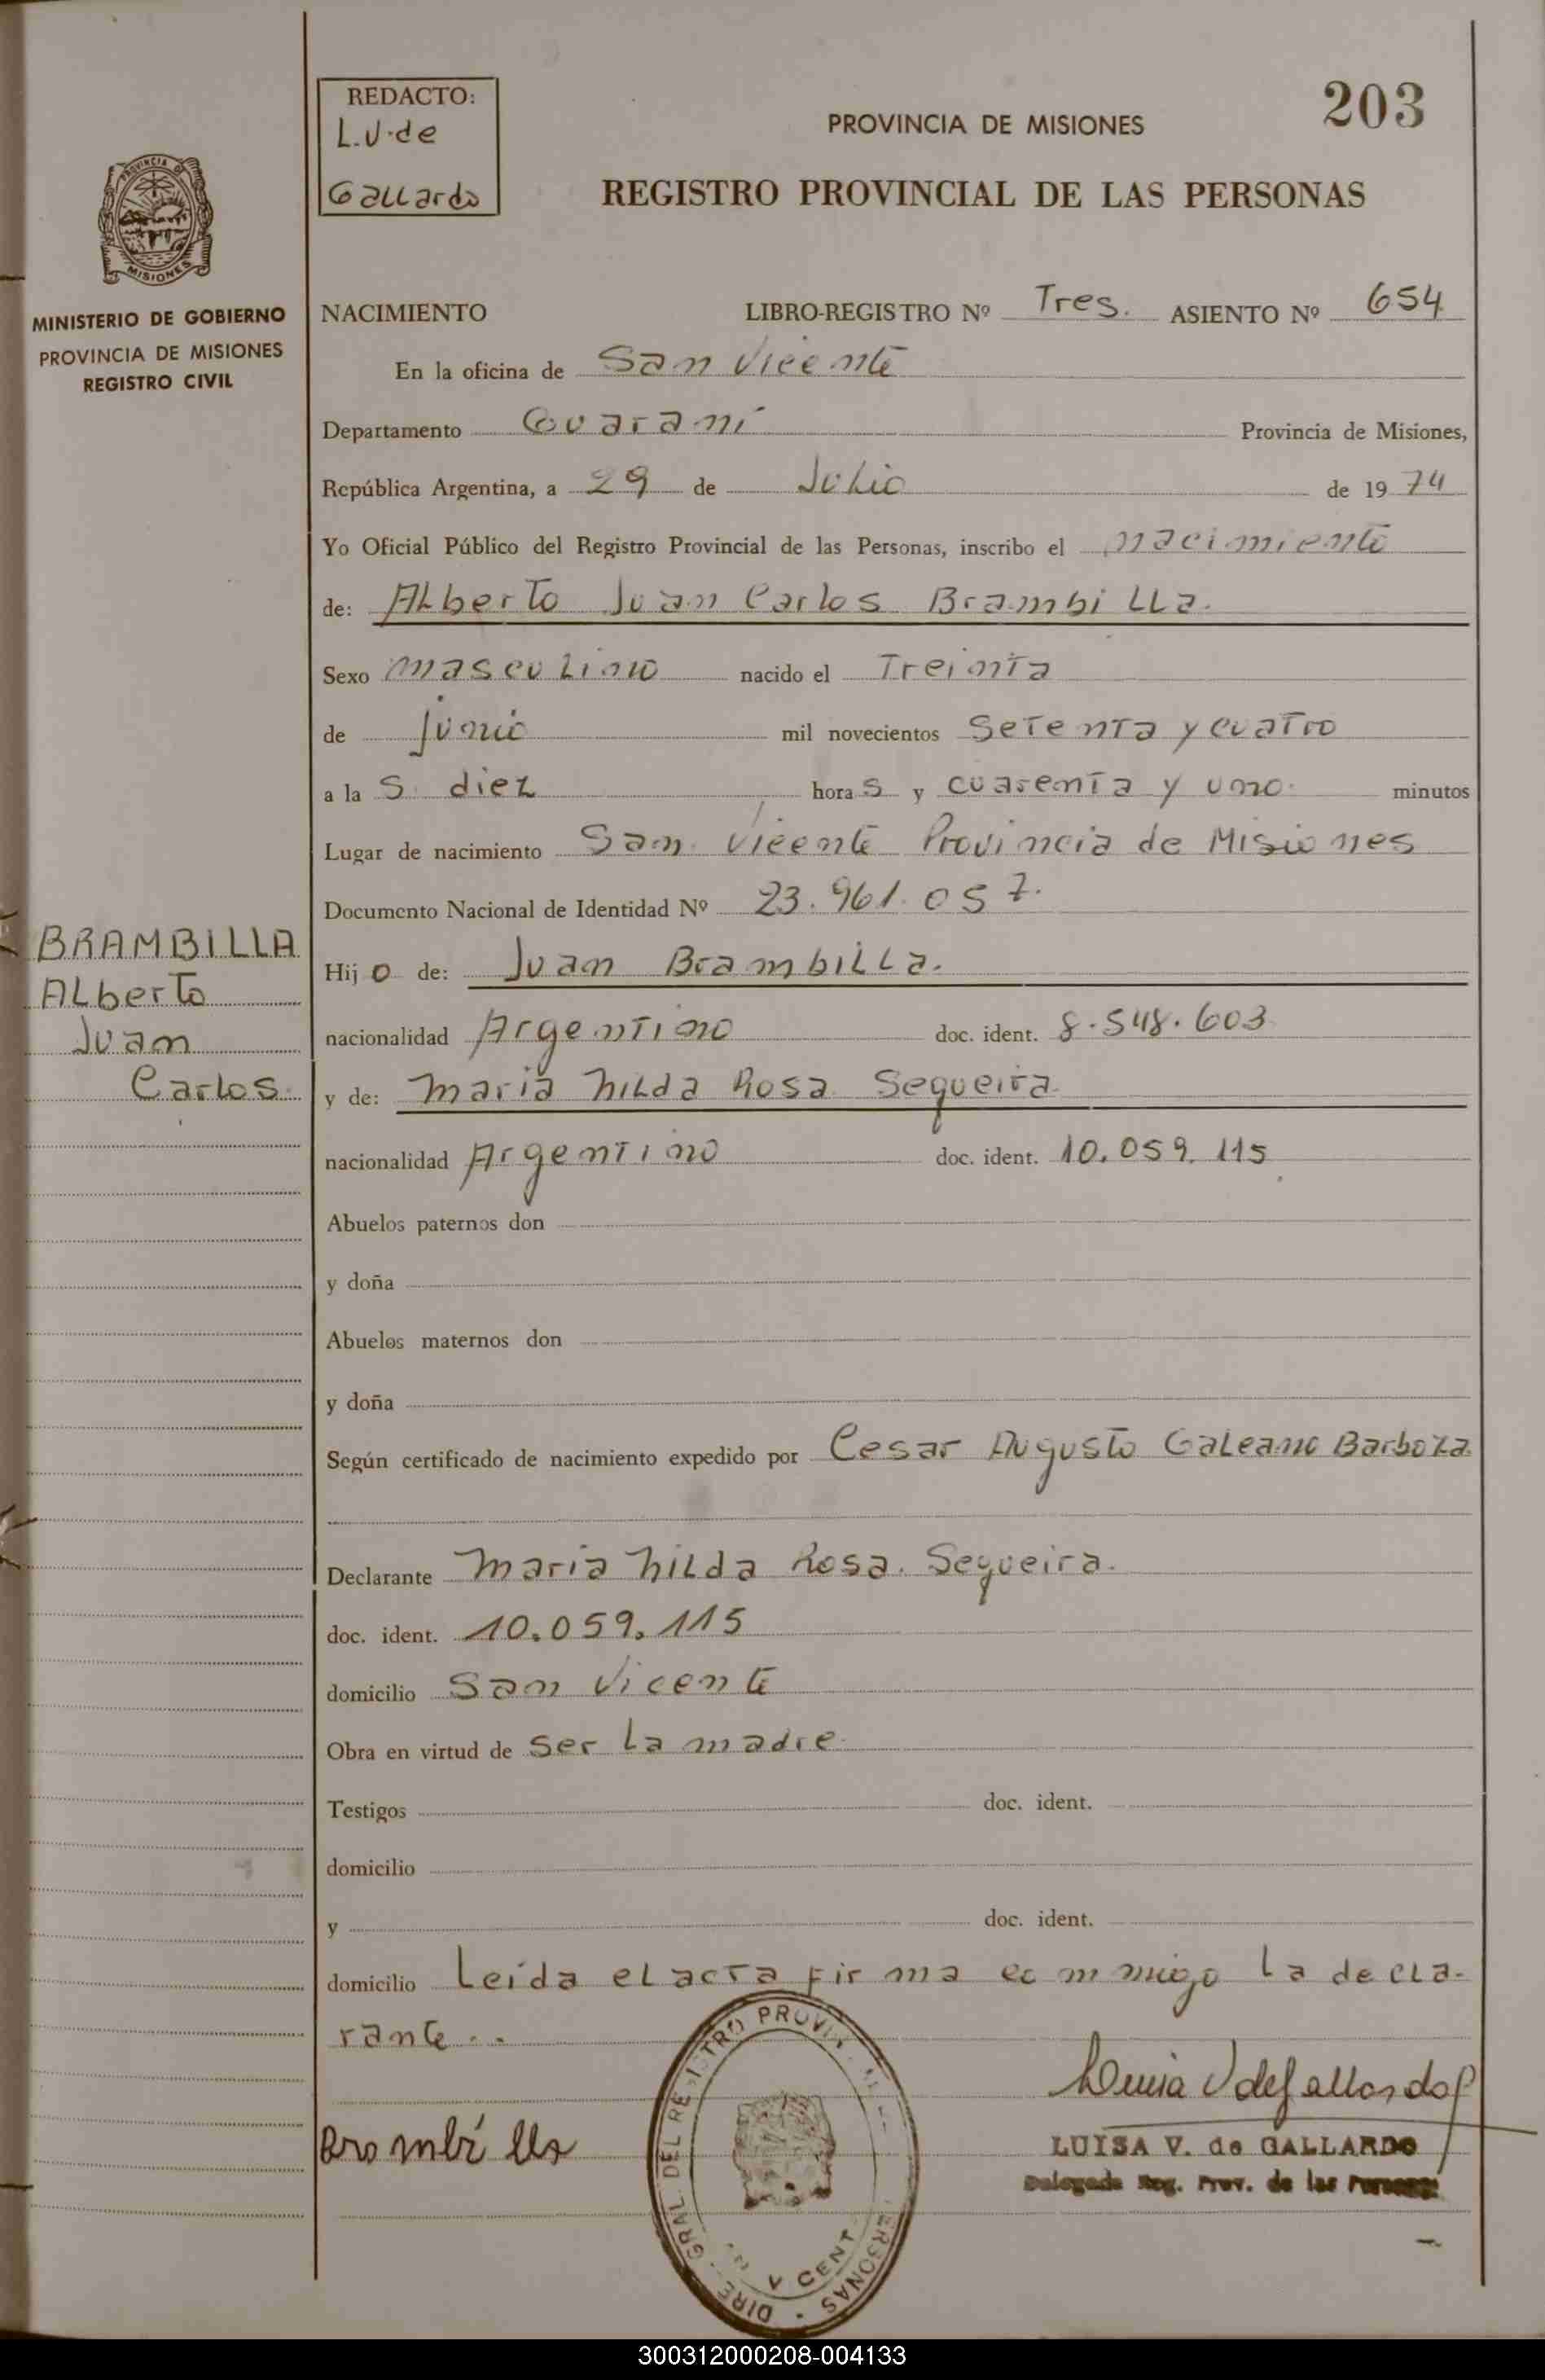 203
REDACTO:
L.V. de
Gallardo
PROVINCIA DE MISIONES
REGISTRO PROVINCIAL DE LAS PERSONAS
PROVINCIA DE
MISIONES
MINISTERIO DE GOBIERNO
PROVINCIA DE MISIONES
REGISTRO CIVIL
BRAMBILLA
Alberto
Juan
Carlos
NACIMIENTO LIBRO-REGISTRO Nº Tres. ASIENTO Nº 654
En la oficina de San Vicente
Departamento Guaraní Provincia de Misiones,
República Argentina, a 29 de Julio de 1974
Yo Oficial Público del Registro Provincial de las Personas, inscribo el nacimiento
de: Alberto Juan Carlos Brambilla.
Sexo masculino nacido el Treinta
de junio mil novecientos setenta y cuatro
a las diez horas y cuarenta y uno. minutos
Lugar de nacimiento San Vicente Provincia de Misiones
Documento Nacional de Identidad Nº 23.961.057.
Hijo de: Juan Brambilla.
nacionalidad Argentino doc. ident. 8.548.603
y de: Maria hilda Rosa Sequeira
nacionalidad Argentino doc. ident. 10.059.115
Abuelos paternos don
y doña
Abuelos maternos don
y doña
Según certificado de nacimiento expedido por Cesar Augusto Galeano Barboza
Declarante Maria hilda Rosa. Sequeira.
doc. ident. 10.059.115
domicilio San Vicente
Obra en virtud de ser la madre
Testigos doc. ident.
domicilio
y doc. ident.
domicilio Leída el acta firma conmigo la decla-
rante..
Brambilla
Luisa V de Gallardo
LUISA V. de GALLARDO
Delegada Reg. Prov. de las Personas
300312000208-004133